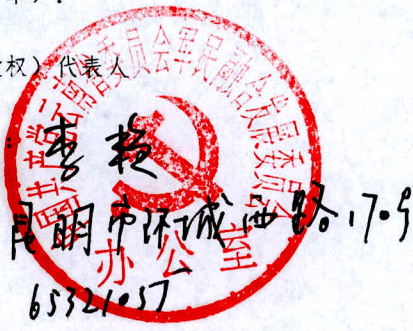 权）代表人
中国共产党云南省委员会军民融合发展委员会
办公室
李
昆明市环城西路170号
65321037